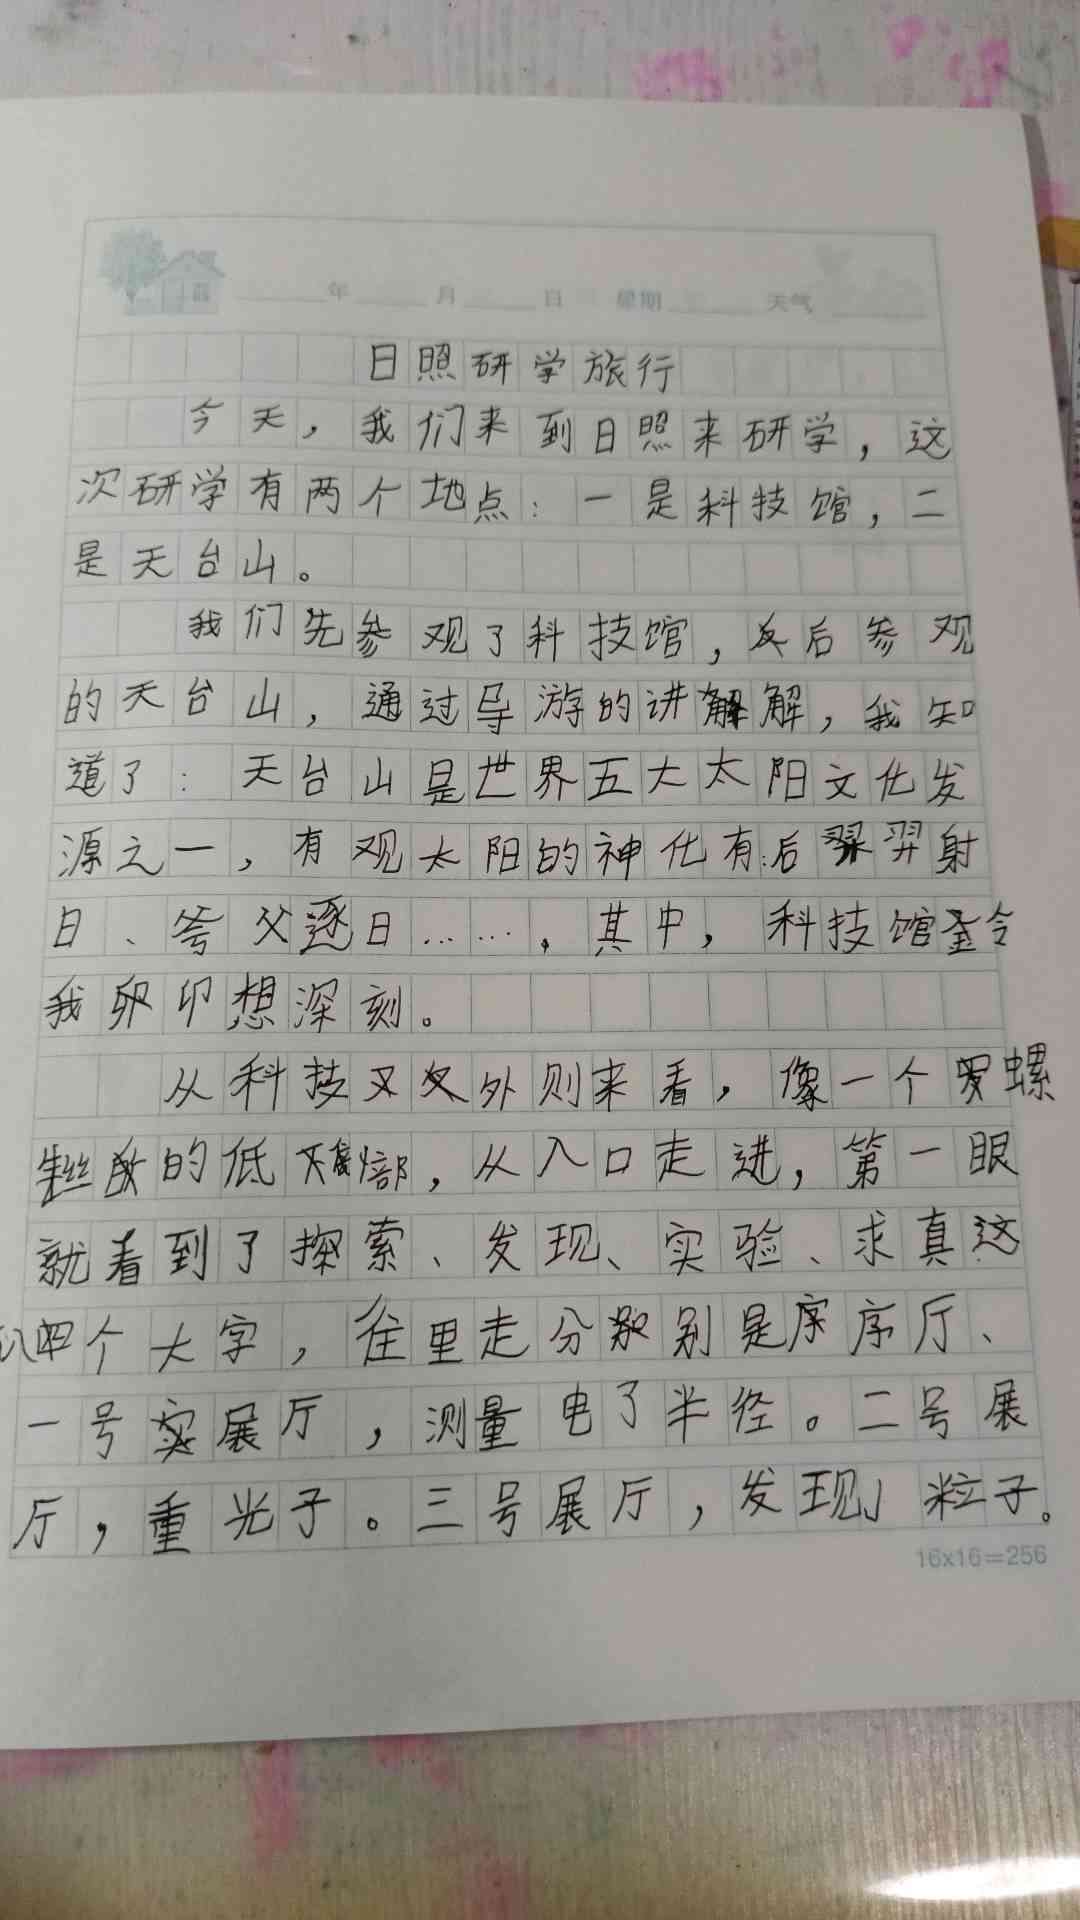 年 月 日 星期 天气
日照研学旅行
今天，我们来到日照来研学，这
次研学有两个地点：一是科技馆，二
是天台山。
我们先参观了科技馆，后参观
的天台山，通过导游的讲解，我知
道了：天台山是世界五大太阳文化发
源之一，有观太阳的神化有:后羿射
日、父逐日……，其中，科技馆令
我印想深刻。
从科技外则来看，像一个螺
丝的低部，从入口走进，第一眼
就看到了探索、发现、实验、求真这
八个大字，往里走分别是序厅、
一号展厅，测量电了半径。二号展
厅，重光子。三号展厅，发现粒子。
16x16=256